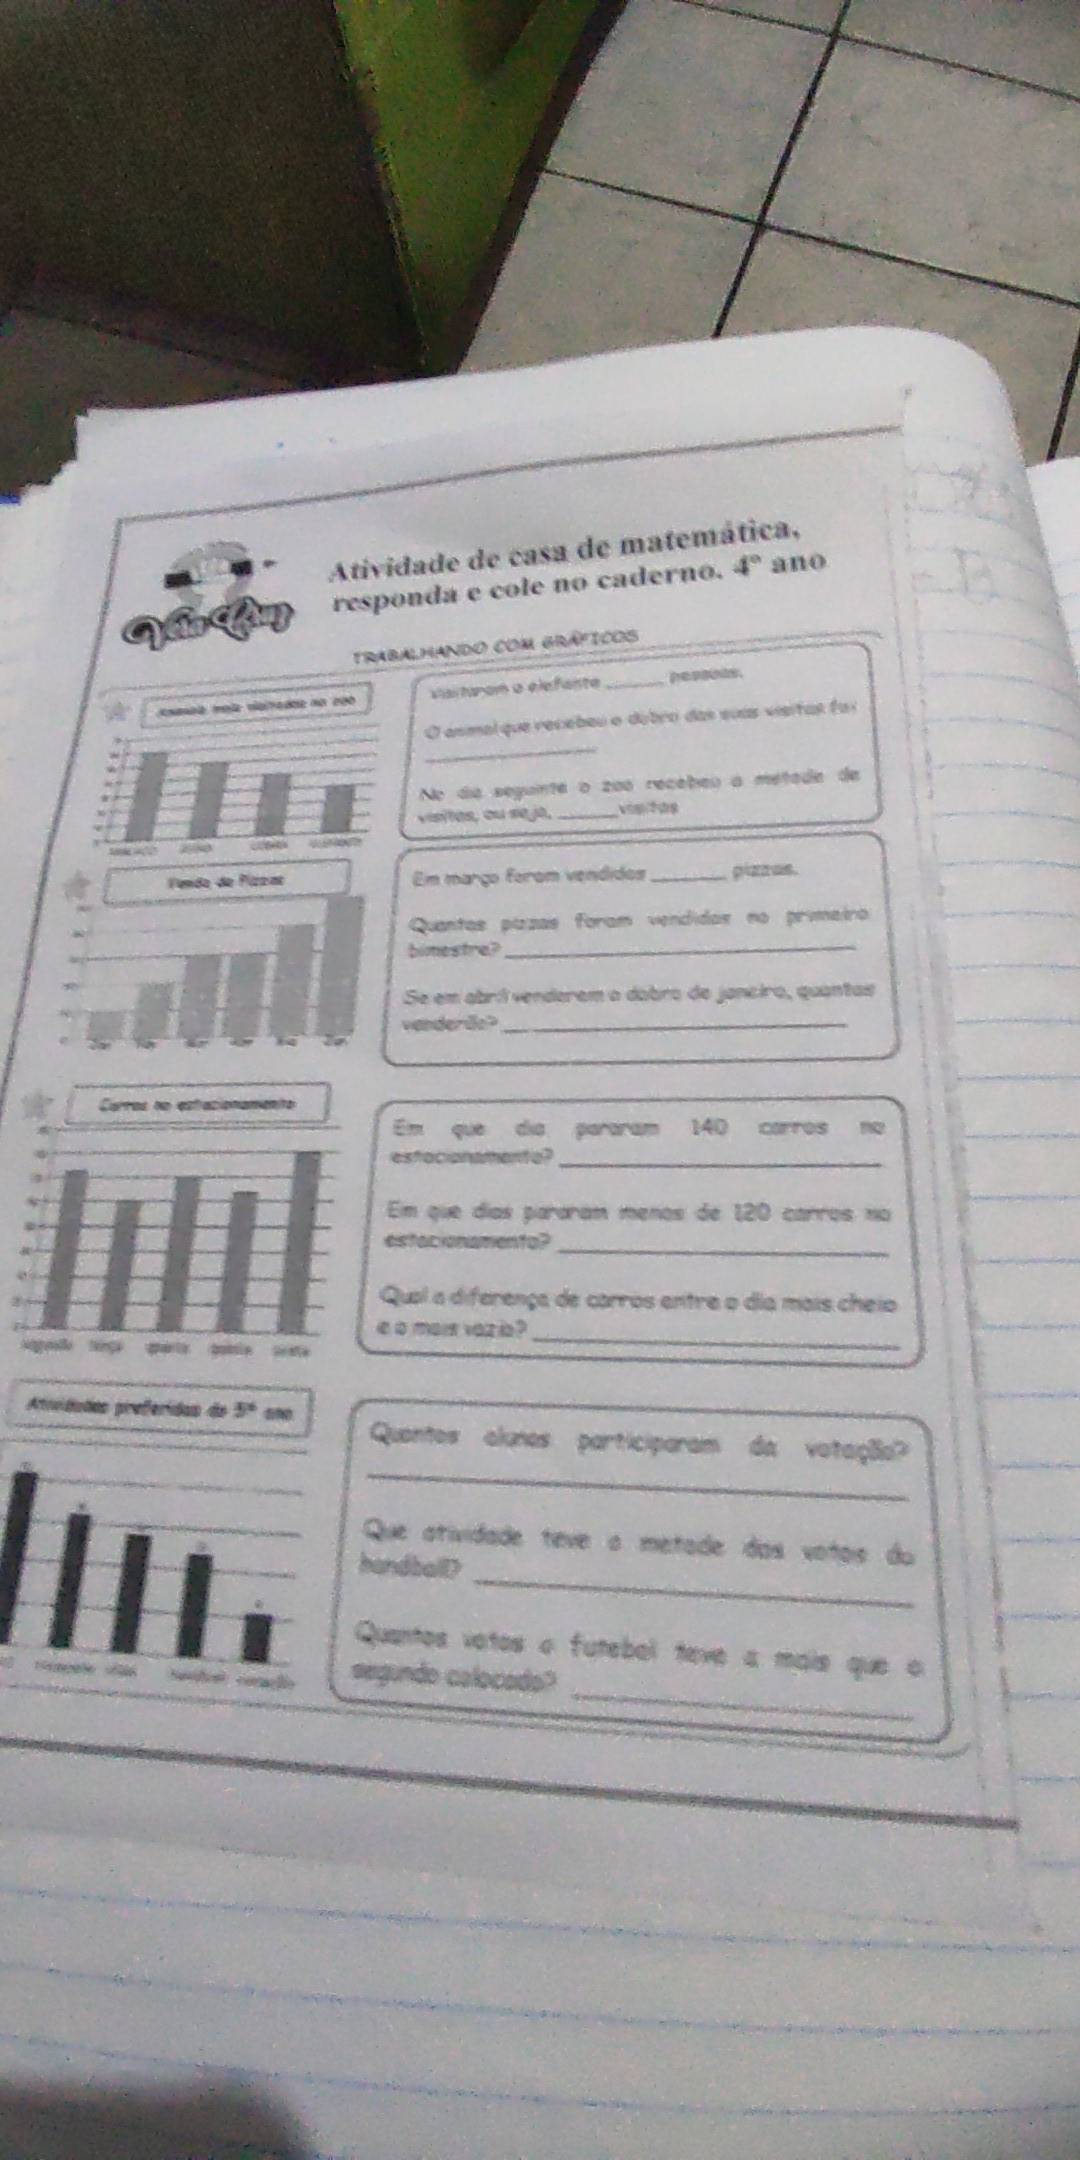 Atividade de casa de matemática,
responda e cole no caderno. 4° ano
TRABALHANDO COM GRÁFICOS
Animais mais visitados no zoo
Visitaram o elefante ______ pessoas.
O animal que recebeu o dobro das suas visitas foi
No dia seguinte o zoo recebeu a metade de
visitas, ou seja, ______ visitas
Venda de Pizzas
Em março foram vendidas ______ pizzas.
Quantas pizzas foram vendidas no primeiro
bimestre? ______
Se em abril venderem o dobro de janeiro, quantas
venderão? ______
Carros no estacionamento
segunda terça quarta quinta sexta
Em que dia pararam 140 carros no
estacionamento? ______
Em que dias pararam menos de 120 carros no
estacionamento? ______
Qual a diferença de carros entre o dia mais cheio
e o mais vazio? ______
Atividades preferidas do 5° ano
Quantos alunos participaram da votação?
Que atividade teve a metade dos votos do
handball? ______
Quantos votos o futebol teve a mais que o
segundo colocado? ______